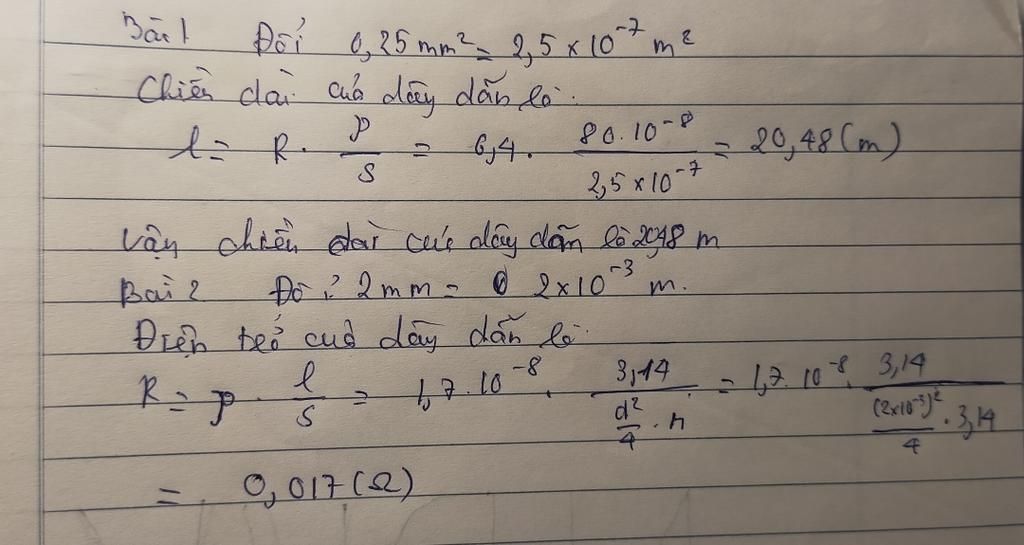 Bài 1 Đổi 0,25 mm² = 2,5 × 10⁻⁷ m²
Chiều dài của dây dẫn là:
l = R · ρ/S = 6,4 · (80 · 10⁻⁸)/(2,5 × 10⁻⁷) = 20,48 (m)
Vậy chiều dài của dây dẫn là 20,48 m
Bài 2 Đổi 2 mm = 2 × 10⁻³ m.
Điện trở của dây dẫn là:
R = ρ · l/S = 1,7 · 10⁻⁸ · 3,14/(d²/4 · π) = 1,7 · 10⁻⁸ · 3,14/((2×10⁻³)²/4 · 3,14)
= 0,017 (Ω)